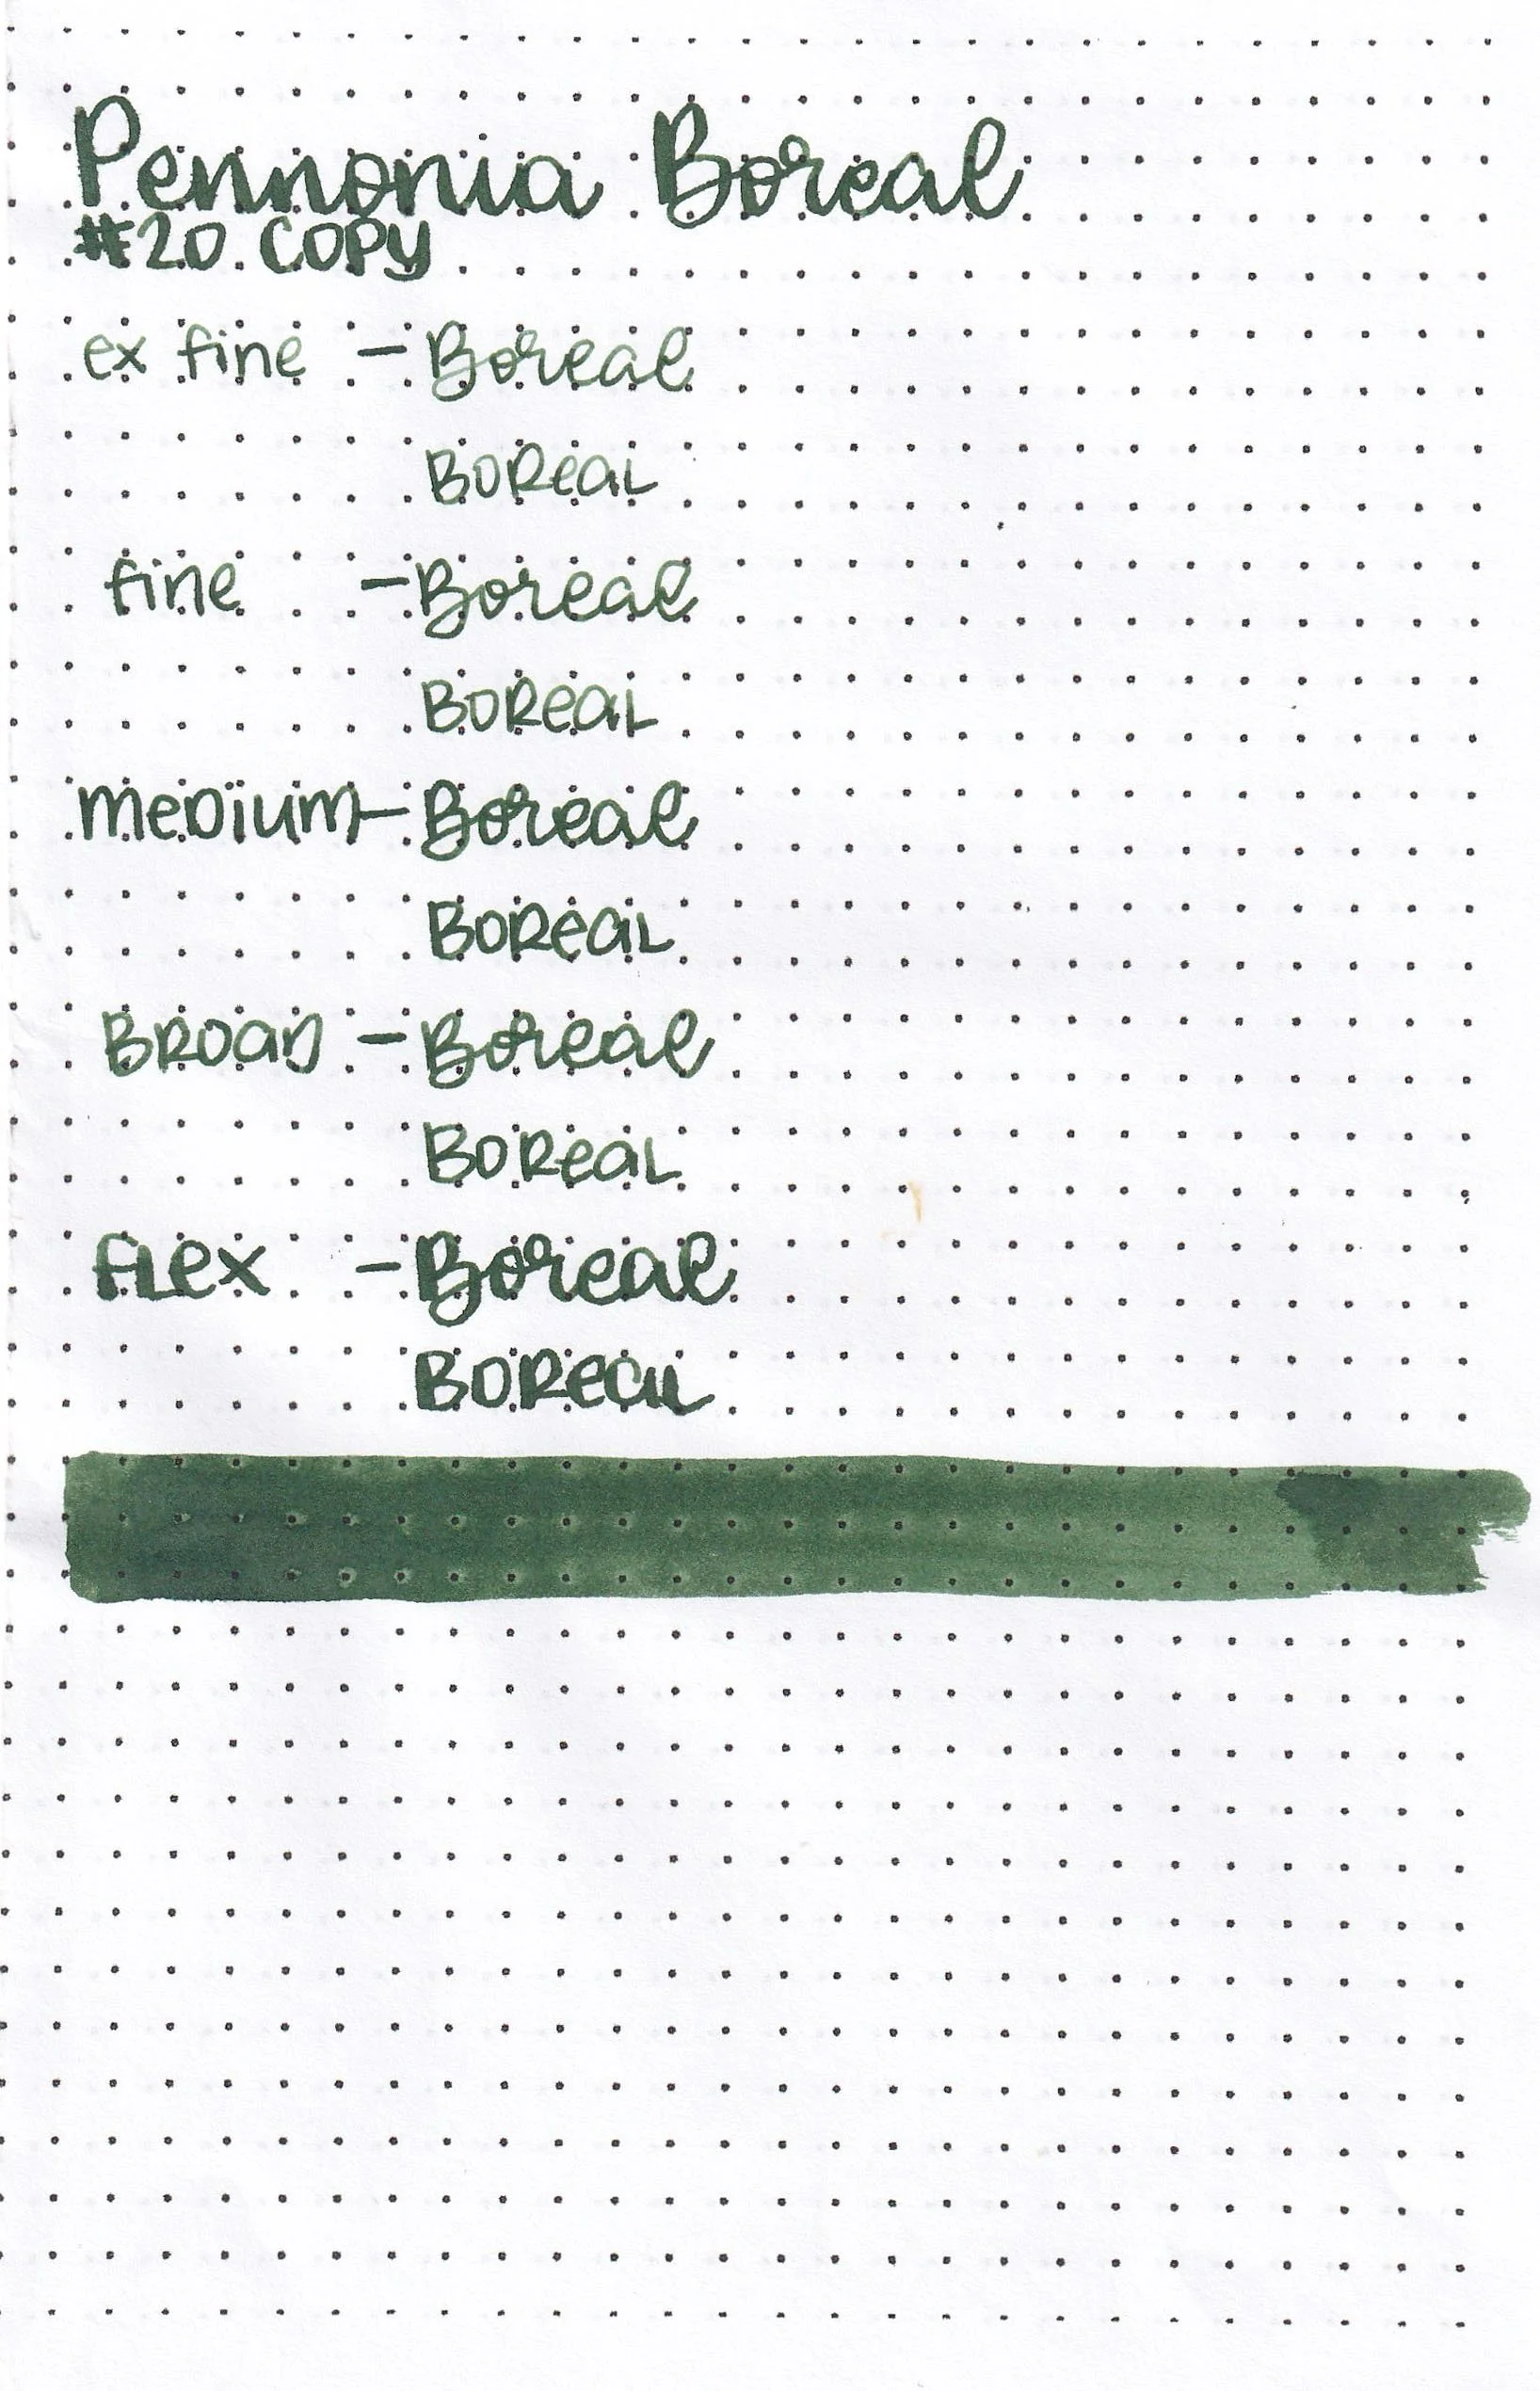 Pennonia Boreal
#20 COPY
ex fine - Boreal
BOReaL
fine - Boreal
BOReaL
meDium - Boreal
BOReaL
BROaD - Boreal
BOReaL
fLex - Boreal
BOReaL